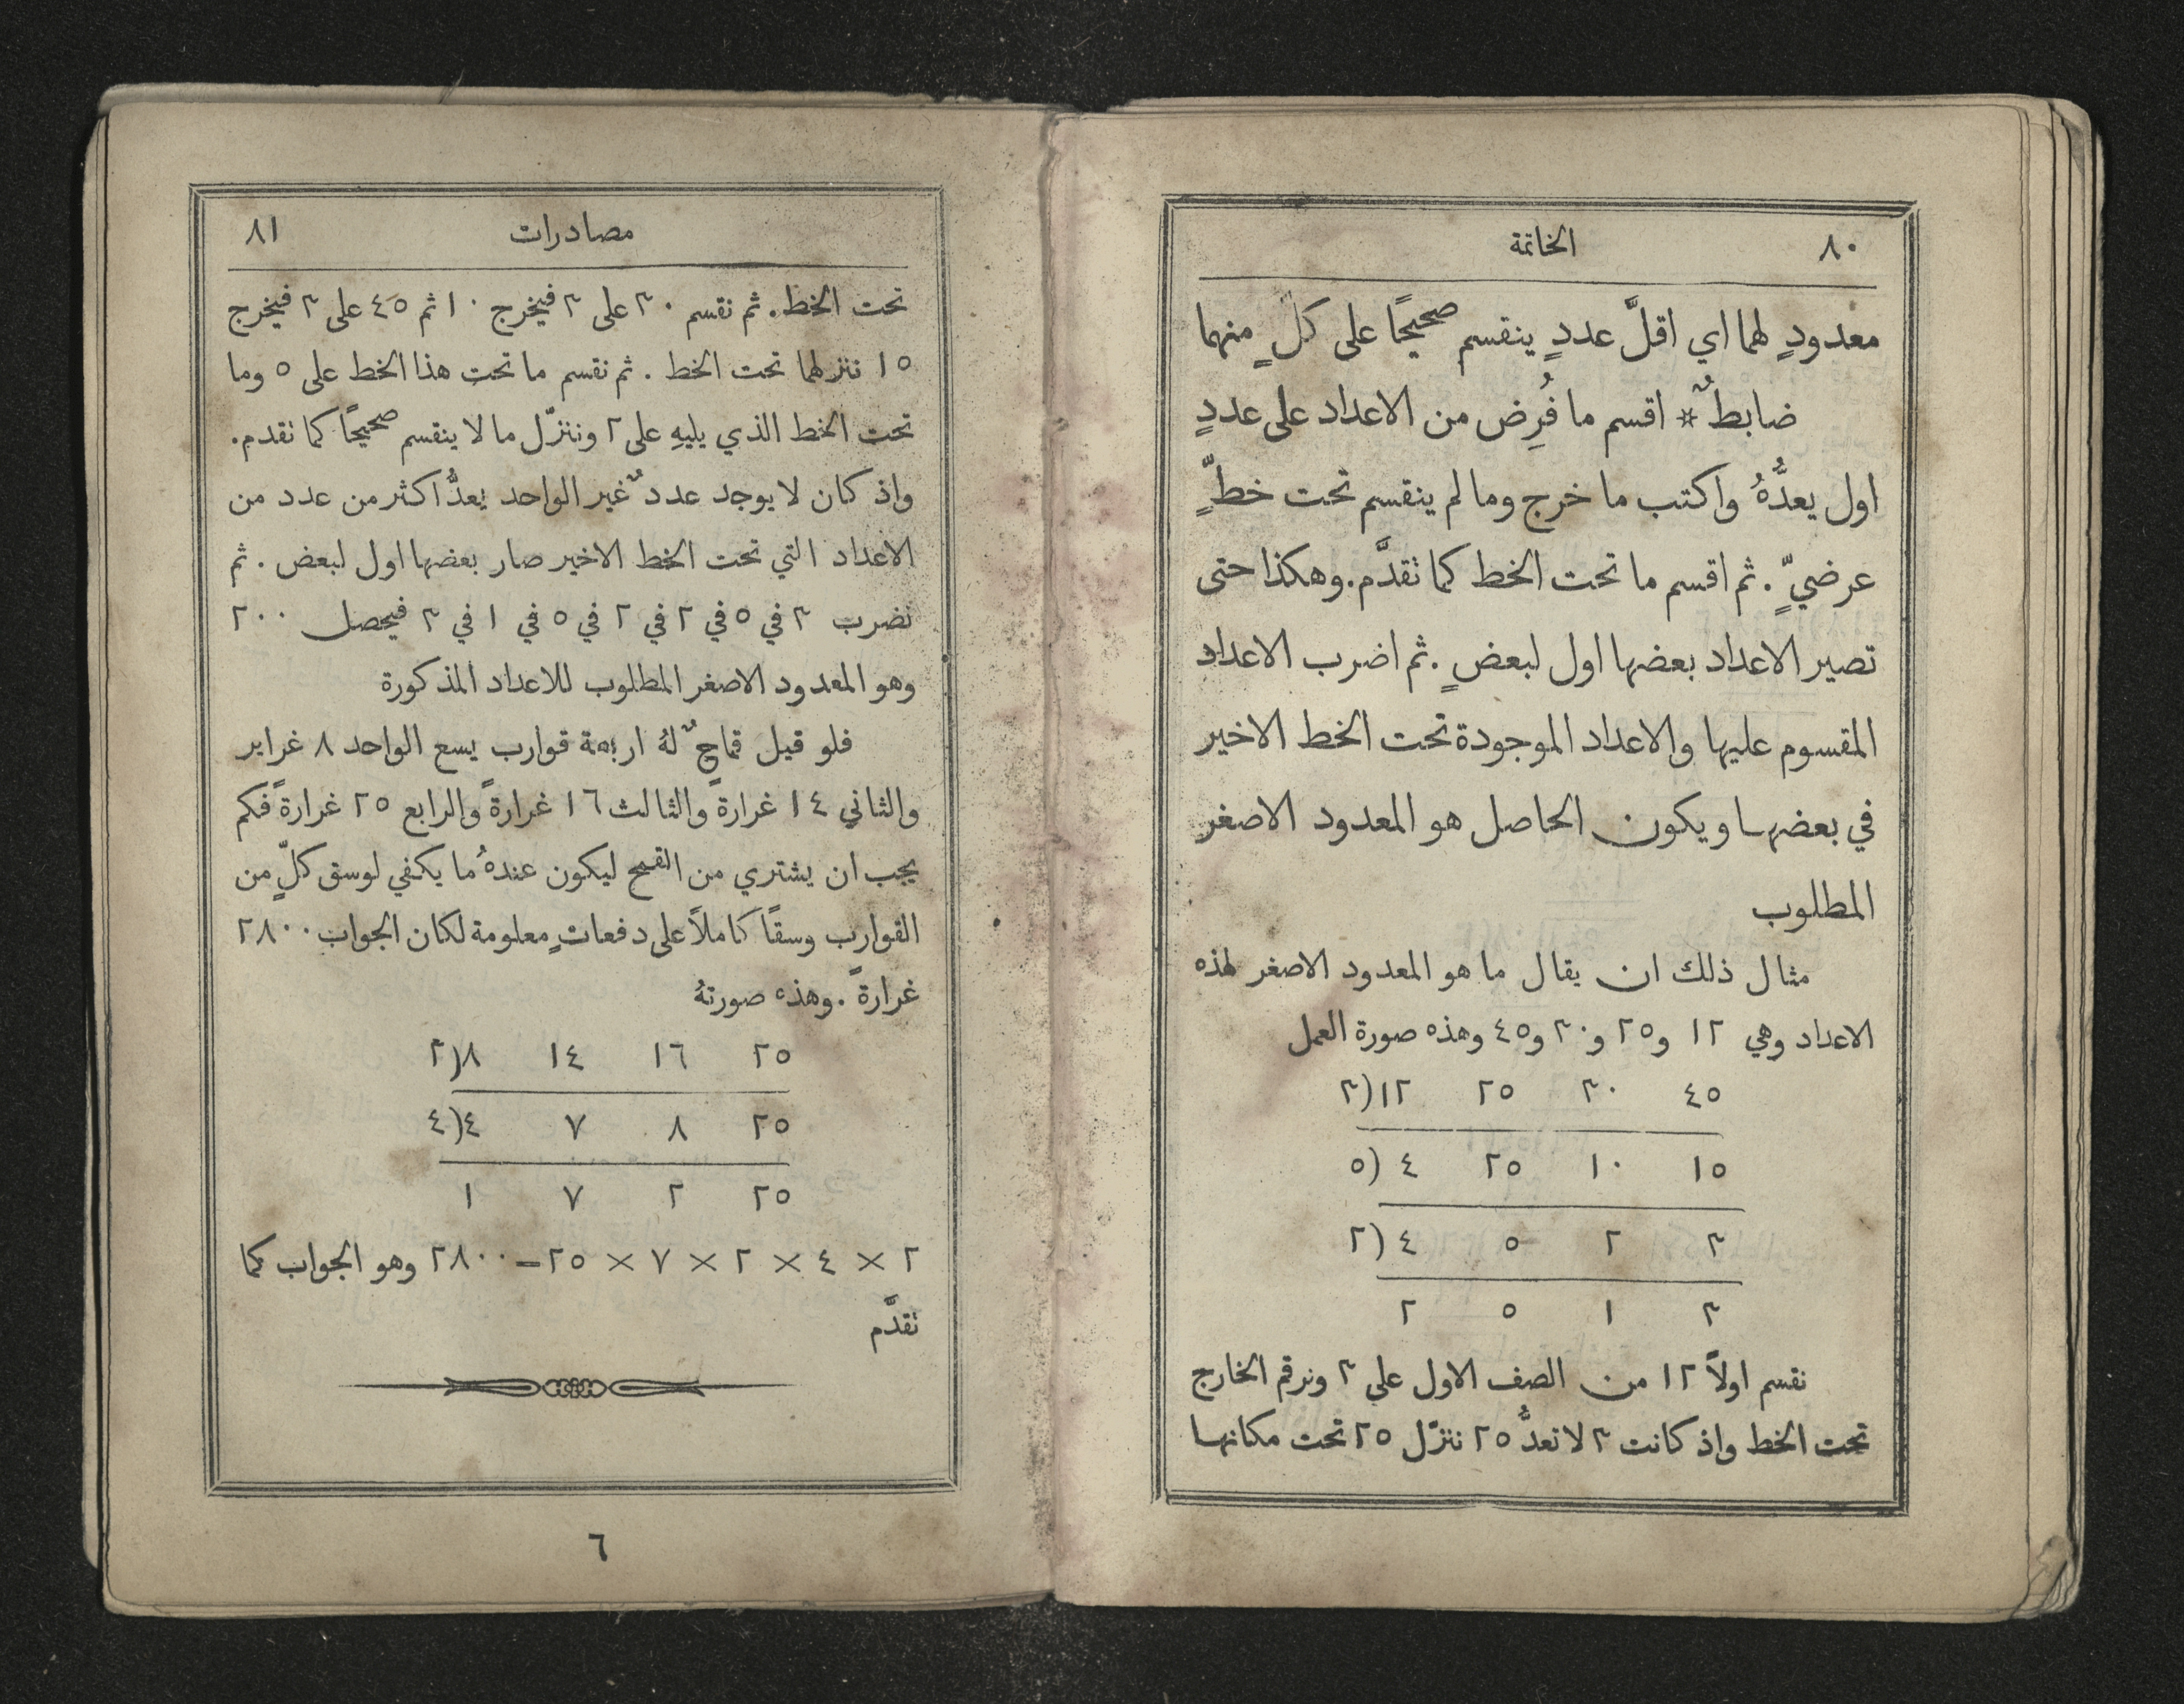 ٨٠ الخاتمة
معدودٍ لهما اي اقلَّ عددٍ ينقسم صحيحًا على كلٍ منهما
ضابطٌ * اقسم ما فُرِض من الاعداد على عددٍ
اول يعدُّهُ واكتب ما خرج وما لم ينقسم تحت خطٍّ
عرضيٍّ . ثم اقسم ما تحت الخط كما تقدَّم. وهكذا حتى
تصير الاعداد بعضها اول لبعضٍ . ثم اضرب الاعداد
المقسوم عليها والاعداد الموجودة تحت الخط الاخير
في بعضها ويكون الحاصل هو المعدود الاصغر
المطلوب
مثال ذلك ان يقال ما هو المعدود الاصغر لهذه
الاعداد وهي ١٢ و٢٥ و٣٠ و٤٥ وهذه صورة العمل
٣)١٢ ٢٥ ٣٠ ٤٥
٥) ٤ ٢٥ ١٠ ١٥
٢) ٤ ٥ ٢ ٣
٢ ٥ ١ ٣
نقسم اولاً ١٢ من الصف الاول على ٣ ونرقم الخارج
تحت الخط واذ كانت ٣ لا تعدُّ ٢٥ ننزّل ٢٥ تحت مكانها
مصادرات ٨١
تحت الخط. ثم نقسم ٣٠ على ٣ فيخرج ١٠ ثم ٤٥ على ٣ فيخرج
١٥ ننزلهما تحت الخط . ثم نقسم ما تحت هذا الخط على ٥ وما
تحت الخط الذي يليهِ على ٢ وننزّل ما لا ينقسم صحيحًا كما تقدم.
واذ كان لا يوجد عددٌ غير الواحد يعدُّ اكثر من عدد من
الاعداد التي تحت الخط الاخير صار بعضها اول لبعض . ثم
نضرب ٣ في ٥ في ٢ في ٢ في ٥ في ١ في ٣ فيحصل ٢٠٠
وهو المعدود الاصغر المطلوب للاعداد المذكورة
فلو قيل قماحٌ لهُ اربعة قوارب يسع الواحد ٨ غراير
والثاني ١٤ غرارةً والثالث ١٦ غرارةً والرابع ٢٥ غرارةً فكم
يجب ان يشتري من القمح ليكون عندهُ ما يكفي لوسق كلٍّ من
القوارب وسقًا كاملاً على دفعاتٍ معلومة لكان الجواب ٢٨٠٠
غرارةً . وهذه صورتهُ
٢)٨ ١٤ ١٦ ٢٥
٤)٤ ٧ ٨ ٢٥
١ ٧ ٢ ٢٥
٢ × ٤ × ٢ × ٧ × ٢٥ = ٢٨٠٠ وهو الجواب كما
تقدَّم
٦